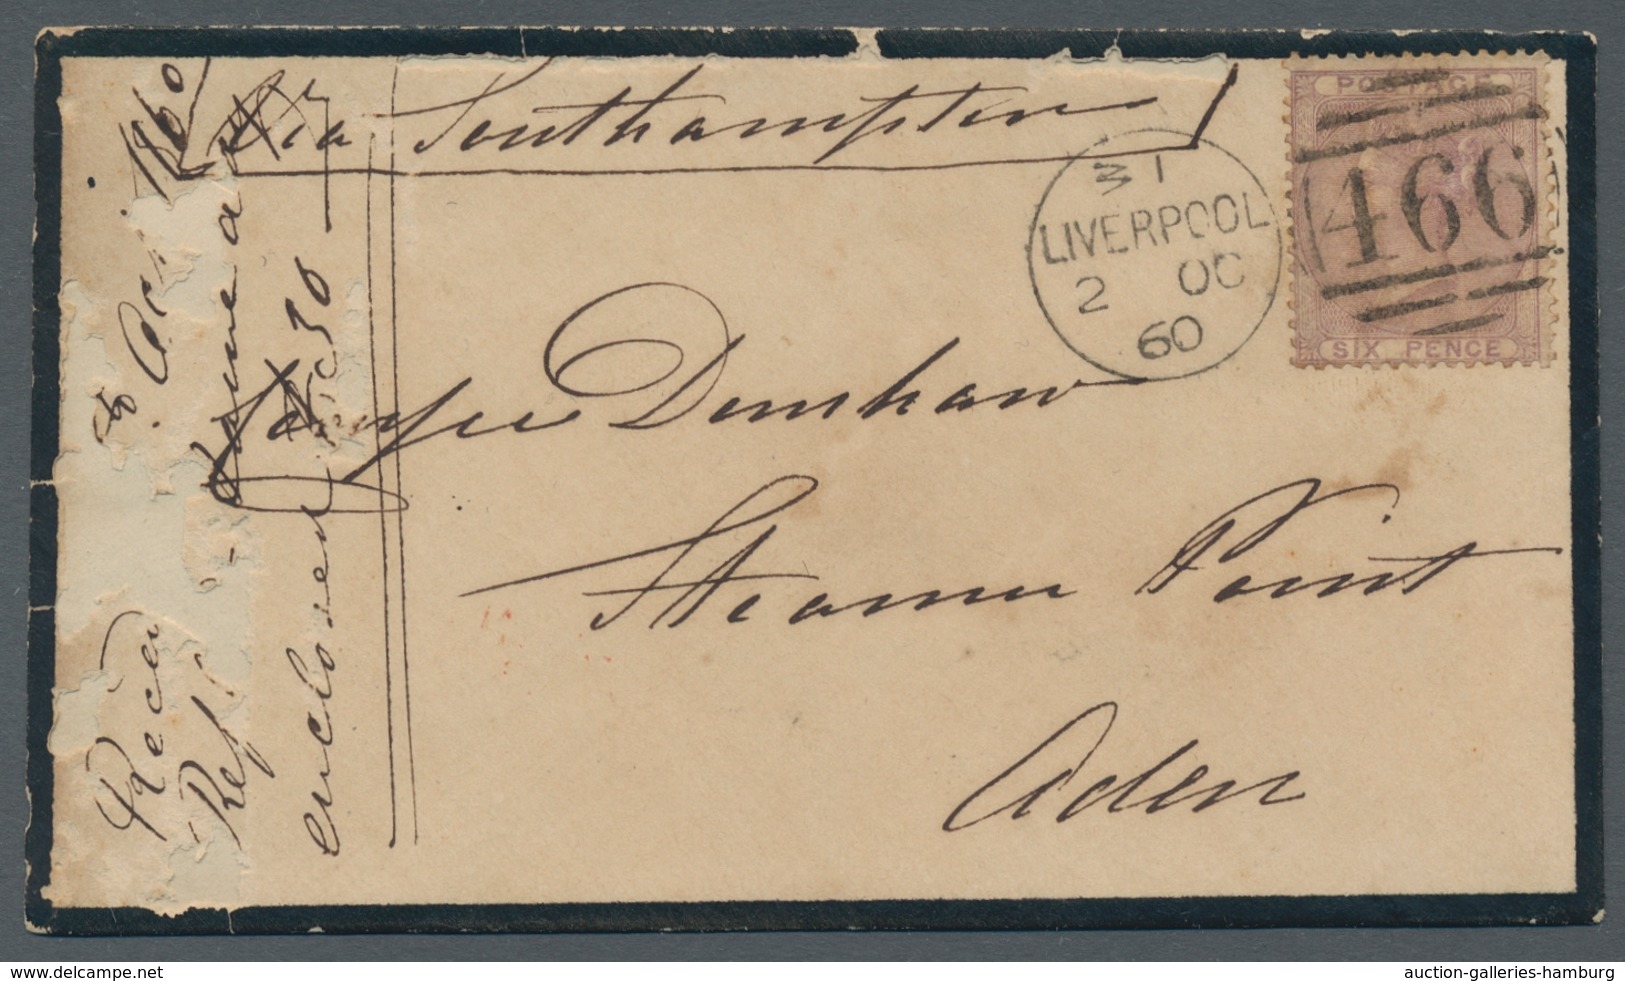 via Southampton
POSTAGE
466
SIX PENCE
3 1
LIVERPOOL
2 OC
60
Denshaw
Steamer Point
Aden
Recd
1860
Ref
30
enclosed
www.delcampe.net
auction-galleries-hamburg